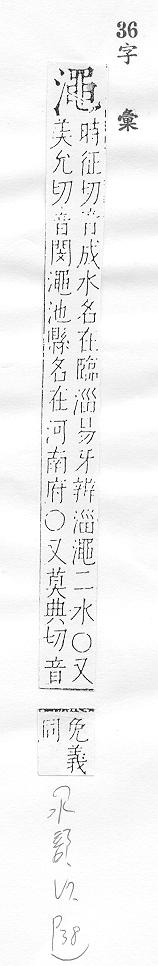 36字彙
澠
時征切音成水名在臨淄易牙辨淄澠二水〇又
美允切音閔澠池縣名在河南府〇又莫典切音
免義
同